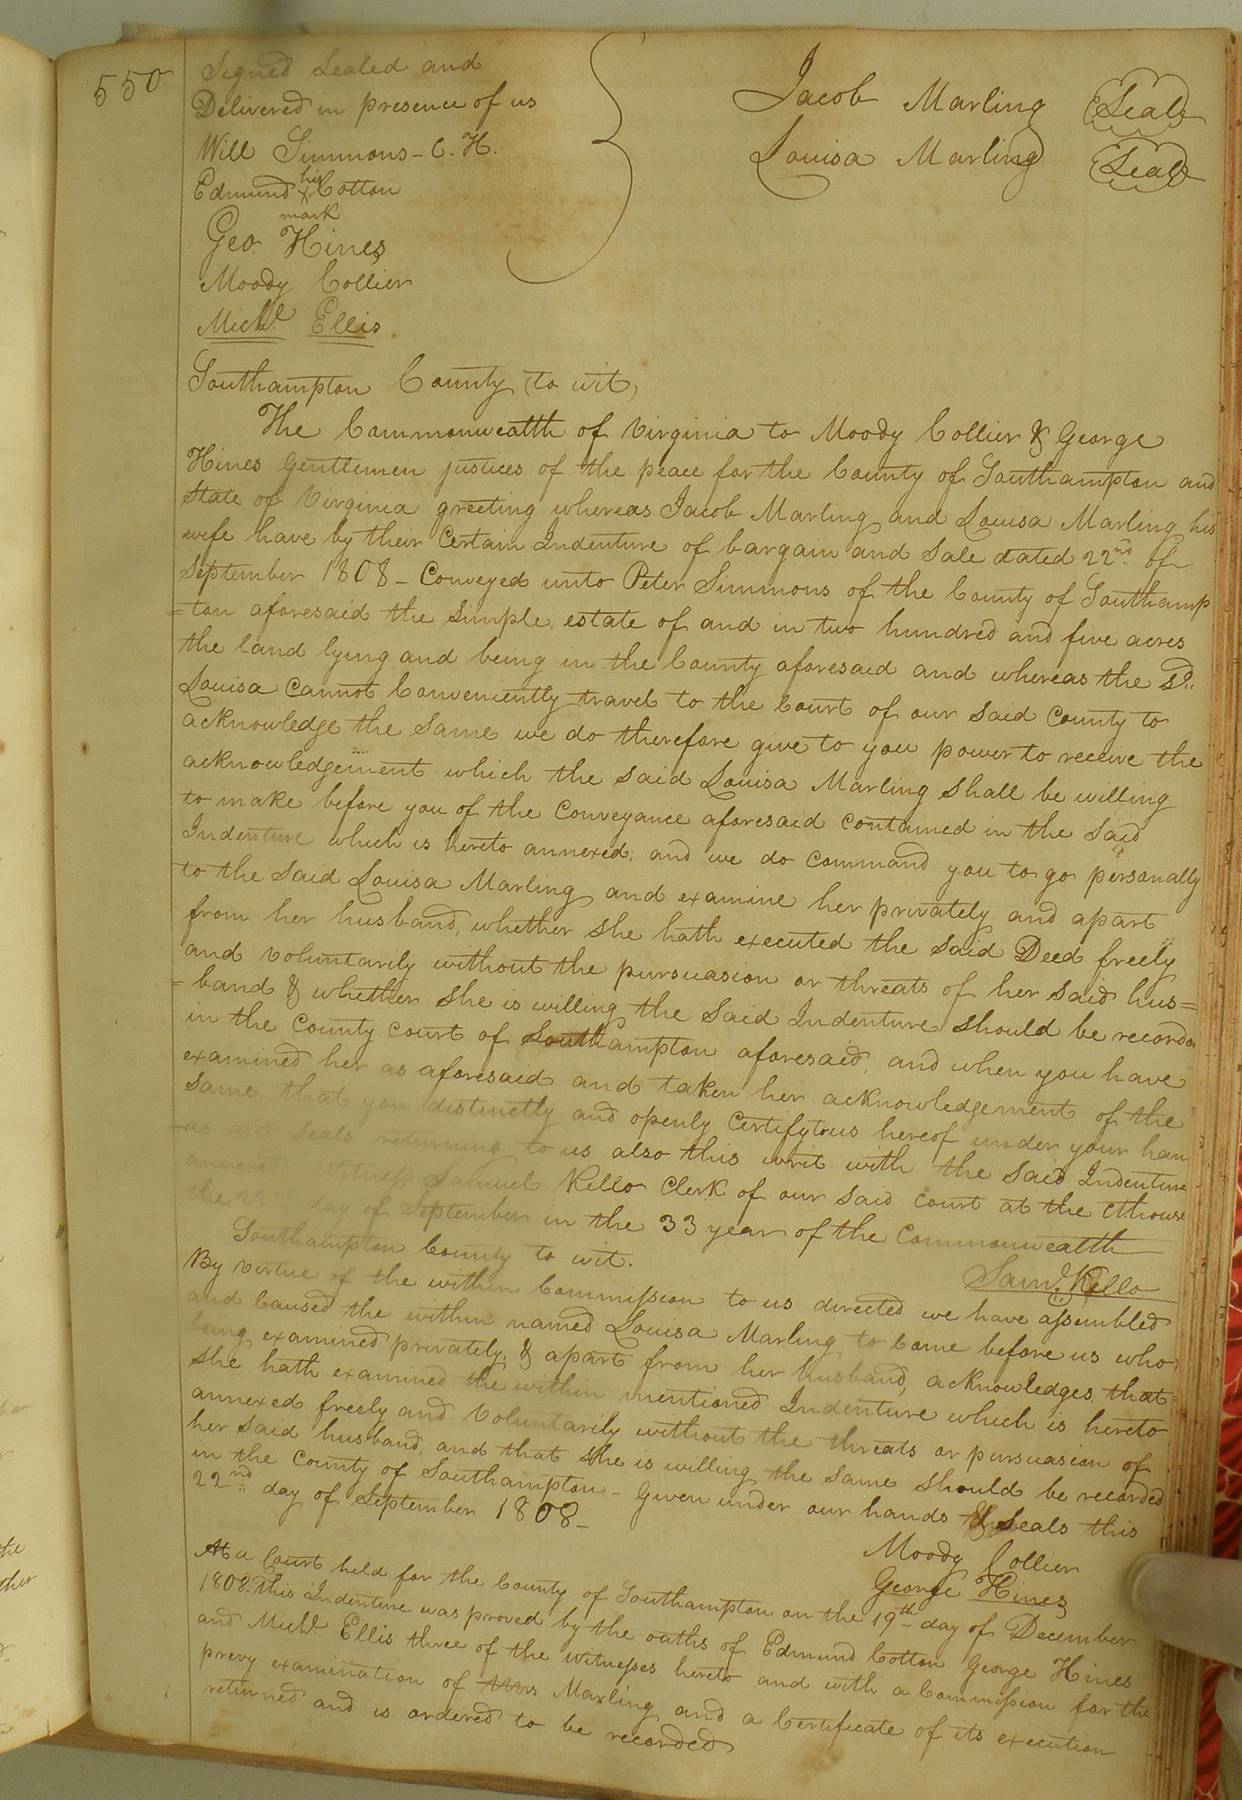 550
Signed Sealed and
Delivered in presence of us
Will Simmons - C. H.
Edmund his X mark Cotton
Geo. Hines
Moody Collier
Michl. Ellis
Jacob Marling Seal
Louisa Marling Seal
Southampton County (to wit,
The Commonwealth of Virginia to Moody Collier & George
Hines Gentlemen justices of the peace for the County of Southampton and
State of Virginia greeting whereas Jacob Marling and Louisa Marling his
wife have by their Certain Indenture of bargain and Sale dated 22nd. of
September 1808 - Conveyed unto Peter Simmons of the County of Southamp
=ton aforesaid the Simple estate of and in two hundred and five acres
the land lying and being in the County aforesaid and whereas the sd.
Louisa Cannot Conveniently travel to the Court of our Said County to
acknowledge the Same we do therefore give to you power to receive the
acknowledgement which the Said Louisa Marling Shall be willing
to make before you of the Conveyance aforesaid Contained in the Said
Indenture which is hereto annexed, and we do Command you to go personally
to the Said Louisa Marling and examine her privately and apart
from her husband, whether She hath executed the Said Deed freely
and Voluntarily without the pursuasion or threats of her Said hus=
=band & whether She is willing the Said Indenture Should be recorded
in the County Court of Southampton aforesaid, and when you have
examined her as aforesaid and taken her acknowledgement of the
Same, that you distinctly and openly Certify to us hereof under your han
=ds and Seals returning to us also this writ with the Said Indenture
annexed Witness Samuel Kello Clerk of our Said Court at the Cthouse
the 22nd day of September in the 33 year of the Commonwealth
Saml. Kello
Southampton County to wit.
By Virtue of the within Commission to us directed we have assembled
and Caused the within named Louisa Marling to Come before us who
being examined privately, & apart from her husband, acknowledges that
She hath examined the within mentioned Indenture which is hereto
annexed freely and Voluntarily without the threats or pursuasion of
her Said husband, and that She is willing the Same Should be recorded
in the County of Southampton - Given under our hands & Seals this
22nd. day of September 1808 -
Moody Collier
George Hines
At a Court held for the County of Southampton on the 19th day of December
1808. This Indenture was proved by the oaths of Edmund Cotton George Hines
and Michl Ellis three of the Witnesses hereto and with a Commission for the
prevy examination of Mrs Marling and a Certificate of its execution
returned and is ordered to be recorded